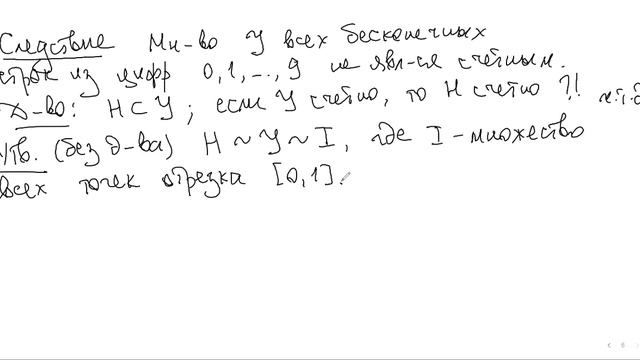 Следствие Мн-во Y всех бесконечных
строк из цифр 0, 1, ..., 9 не явл-ся счётным.
Д-во: H ⊂ Y ; если Y счётно, то H счётно ?! и.т.д
Утв. (без д-ва) H ~ Y ~ I, где I - множество
всех точек отрезка [0, 1].